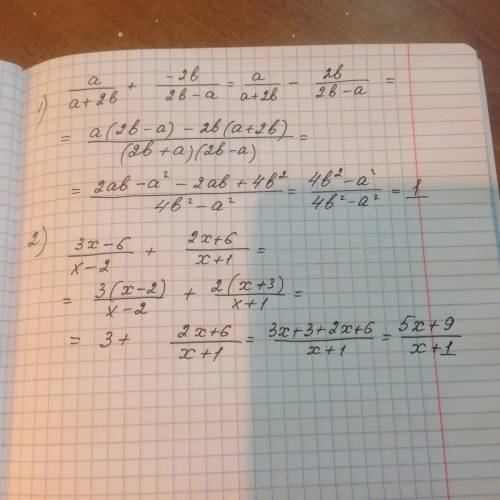 1) a/(a+2b) + -2b/(2b-a) = a/(a+2b) - 2b/(2b-a) =
= (a(2b-a) - 2b(a+2b))/((2b+a)(2b-a)) =
= (2ab-a² - 2ab+4b²)/(4b²-a²) = (4b²-a²)/(4b²-a²) = 1
2) (3x-6)/(x-2) + (2x+6)/(x+1) =
= 3(x-2)/(x-2) + 2(x+3)/(x+1) =
= 3 + (2x+6)/(x+1) = (3x+3+2x+6)/(x+1) = (5x+9)/(x+1)